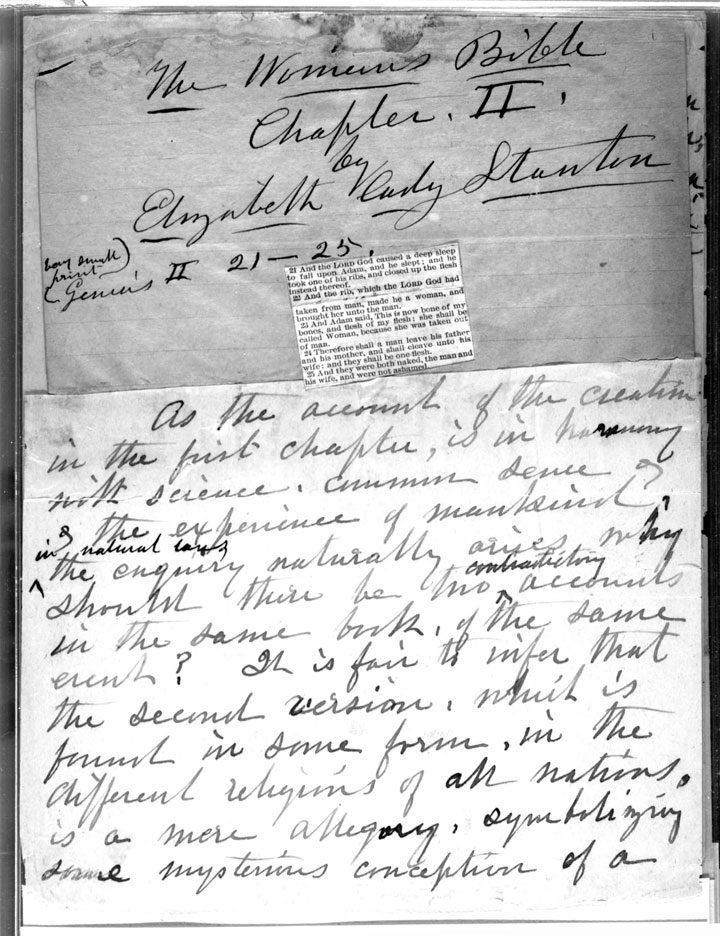 The Woman's Bible
Chapter. II.
by
Elizabeth Cady Stanton
small
print
Genesis II 21–25.
21 And the LORD God caused a deep sleep
to fall upon Adam, and he slept; and he
took one of his ribs, and closed up the flesh
instead thereof.
22 And the rib, which the LORD God had
taken from man, made he a woman, and
brought her unto the man.
23 And Adam said, This is now bone of my
bones, and flesh of my flesh; she shall be
called Woman, because she was taken out
of man.
24 Therefore shall a man leave his father
and his mother, and shall cleave unto his
wife; and they shall be one flesh.
25 And they were both naked, the man and
his wife, and were not ashamed.
As the account of the creation
in the first chapter, is in harmony
with science, common sense &
& the experience of mankind,
in natural laws
the enquiry naturally arises, why
contradictory
should there be two accounts
in the same book, of the same
event? It is fair to infer that
the second version, which is
found in some form, in the
different religions of all nations,
is a mere allegory, symbolizing
some mysterious conception of a